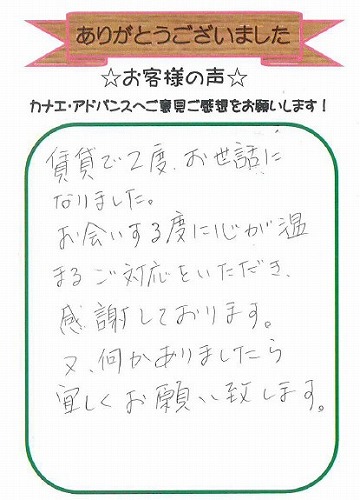 ありがとうございました
☆お客様の声☆
カナエ・アドバンスへご意見ご感想をお願いします！
賃貸で2度、お世話に
なりました。
お会いする度に心が温
まるご対応をいただき、
感謝しております。
又、何かありましたら
宜しくお願い致します。